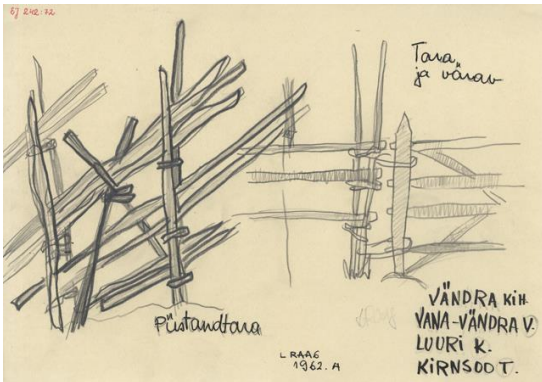 EJ 242:72
Tara
ja värav
Püstandtara
L RAAG
1962. A
VÄNDRA KIH.
VANA-VÄNDRA V.
LUURI K.
KIRNSOO T.